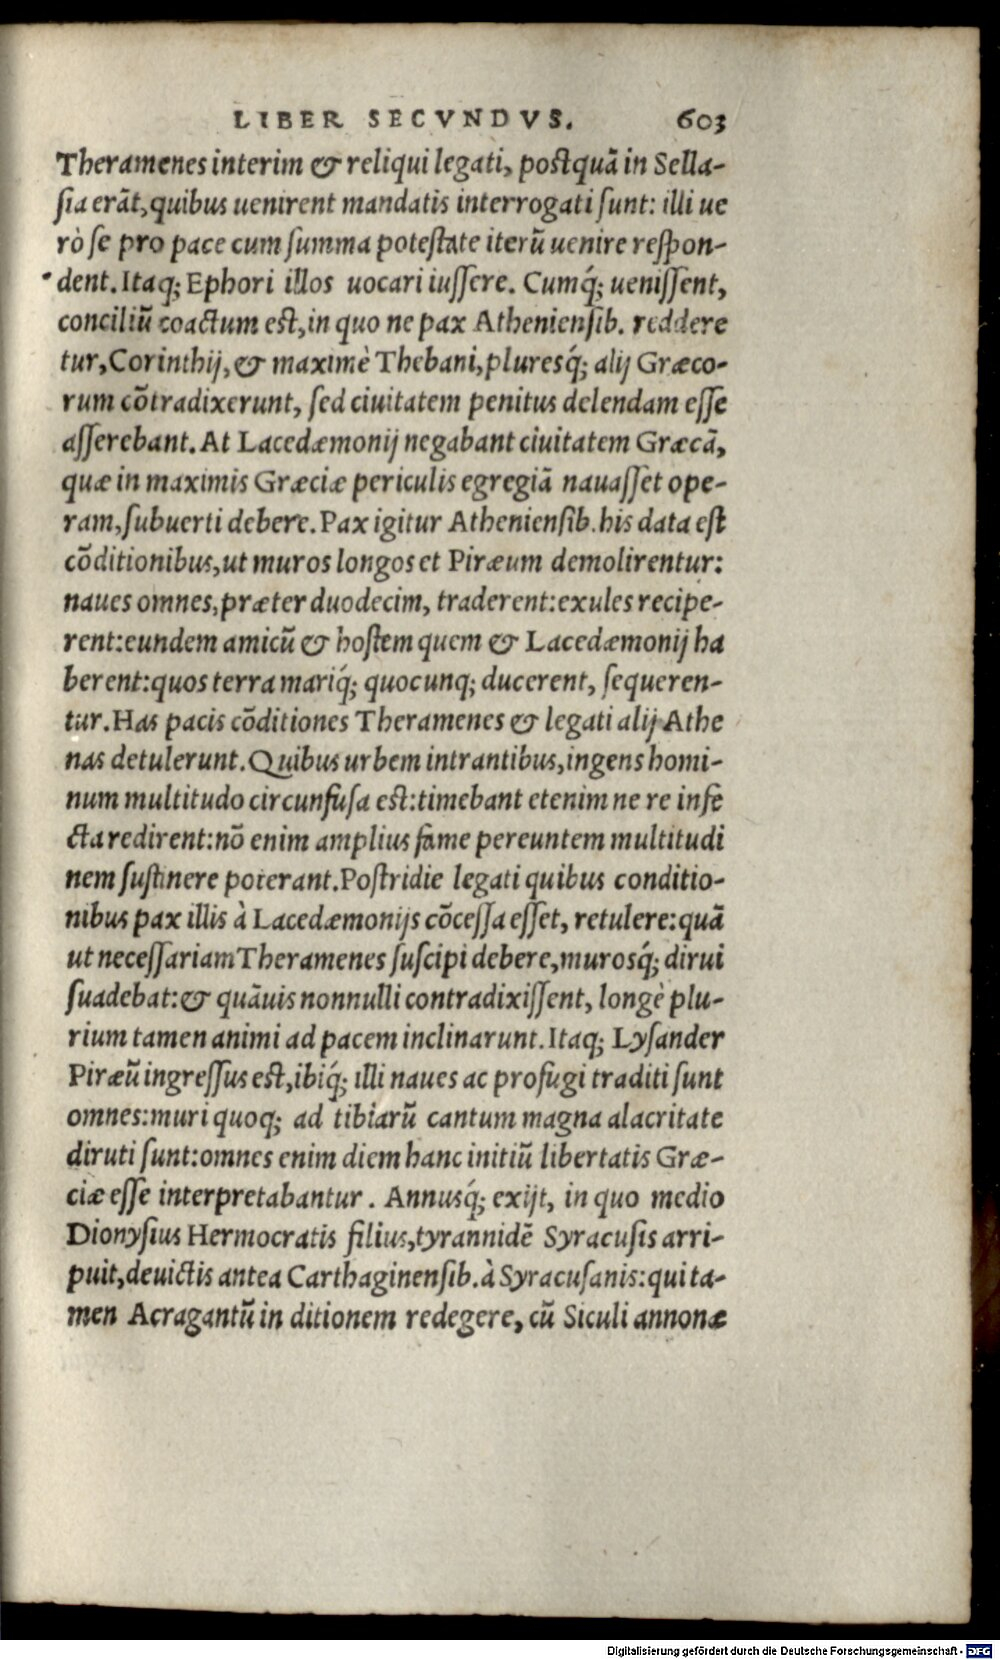 LIBER SECVNDVS. 603
Theramenes interim & reliqui legati, postquã in Sella-
sia erãt, quibus uenirent mandatis interrogati sunt: illi ue
rò se pro pace cum summa potestate iterũ uenire respon-
dent. Itaq; Ephori illos uocari iussere. Cumq́; uenissent,
conciliũ coactum est, in quo ne pax Atheniensib. reddere
tur, Corinthij, & maximè Thebani, pluresq́; alij Græco-
rum cõtradixerunt, sed ciuitatem penitus delendam esse
asserebant. At Lacedæmonij negabant ciuitatem Græcã,
quæ in maximis Græciæ periculis egregiã nauasset ope-
ram, subuerti debere. Pax igitur Atheniensib. his data est
cõditionibus, ut muros longos et Piræum demolirentur:
naues omnes, præter duodecim, traderent: exules recipe-
rent: eundem amicũ & hostem quem & Lacedæmonij ha
berent: quos terra mariq́; quocunq; ducerent, sequeren-
tur. Has pacis cõditiones Theramenes & legati alij Athe
nas detulerunt. Quibus urbem intrantibus, ingens homi-
num multitudo circunfusa est: timebant etenim ne re infe
cta redirent: nõ enim amplius fame pereuntem multitudi
nem sustinere poterant. Postridie legati quibus conditio-
nibus pax illis à Lacedæmonijs cõcessa esset, retulere: quã
ut necessariam Theramenes suscipi debere, murosq́; dirui
suadebat: & quãuis nonnulli contradixissent, longè plu-
rium tamen animi ad pacem inclinarunt. Itaq; Lysander
Piræũ ingressus est, ibiq́; illi naues ac profugi traditi sunt
omnes: muri quoq; ad tibiarũ cantum magna alacritate
diruti sunt: omnes enim diem hanc initiũ libertatis Græ-
ciæ esse interpretabantur. Annusq́; exijt, in quo medio
Dionysius Hermocratis filius, tyrannidẽ Syracusis arri-
puit, deuictis antea Carthaginensib. à Syracusanis: qui ta-
men Acragantũ in ditionem redegere, cũ Siculi annonæ
Digitalisierung gefördert durch die Deutsche Forschungsgemeinschaft - DFG